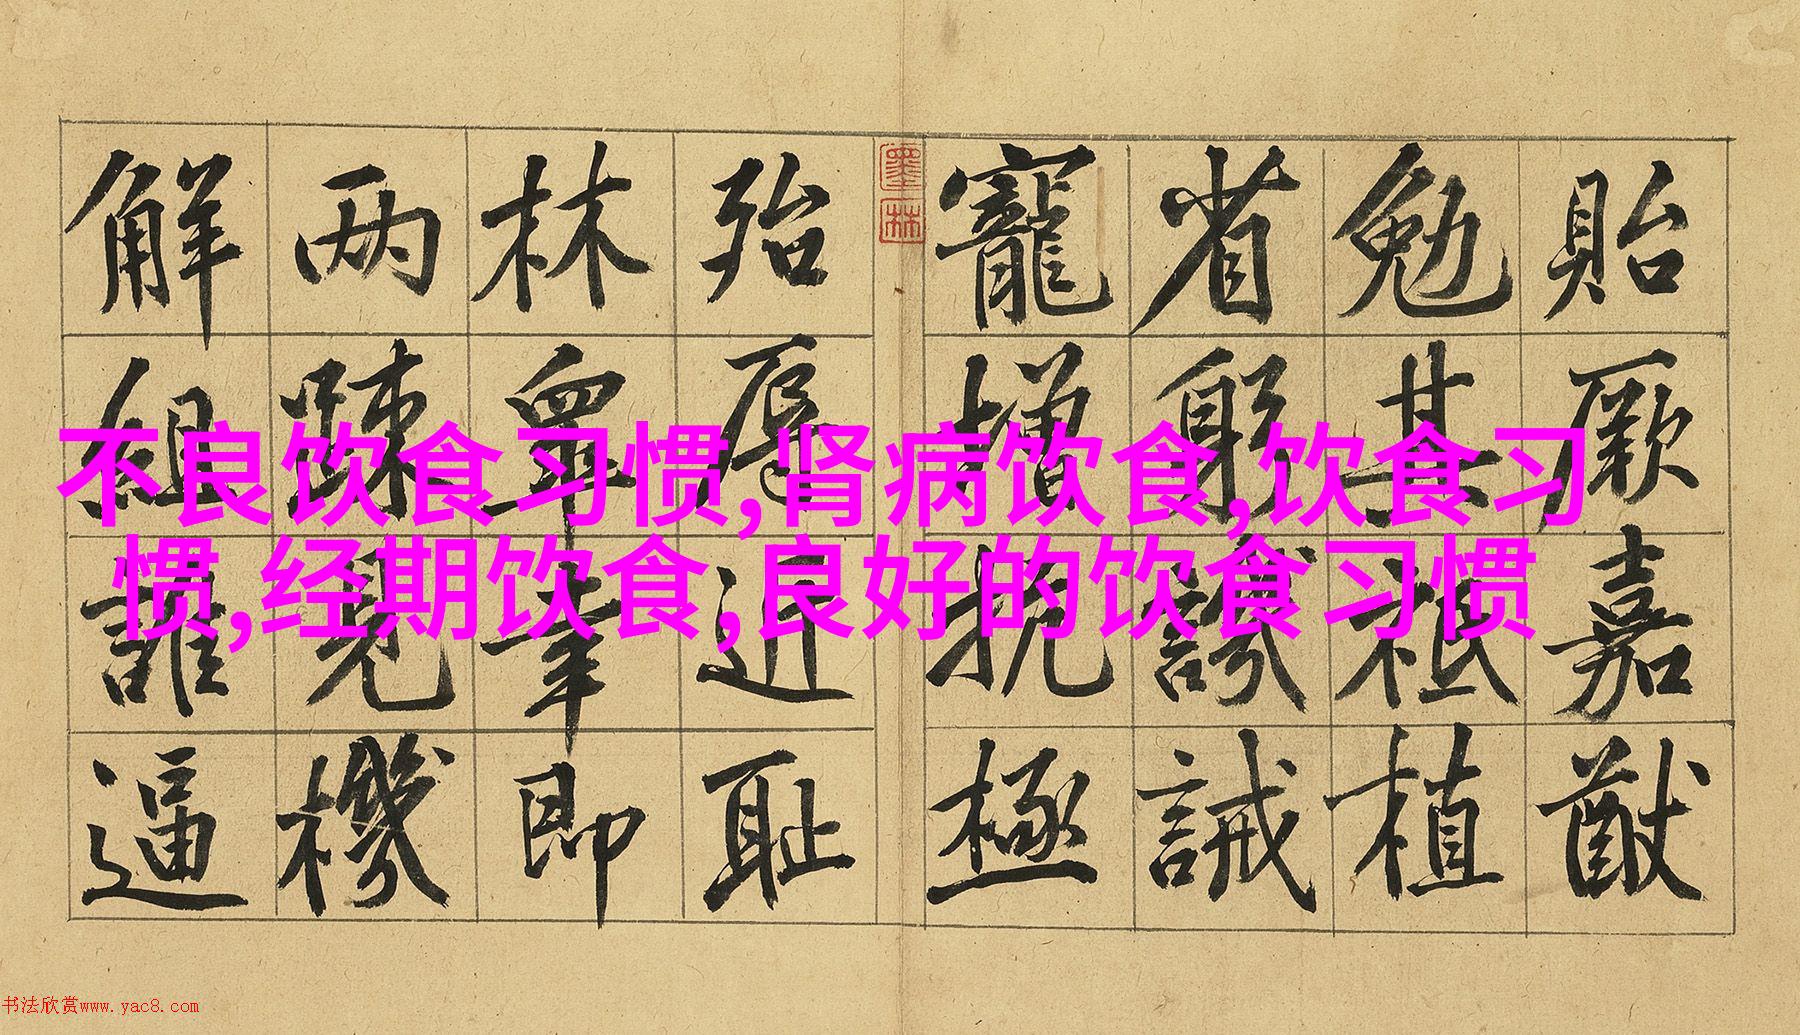 貽厥嘉猷
勉其祗植
省躬譏誡
寵增抗極
殆辱近耻
林皐幸即
两踈見機
解組誰逼
墨林
不良饮食习惯,肾病饮食,饮食习
惯,经期饮食,良好的饮食习惯
书法欣赏www.yac8.com